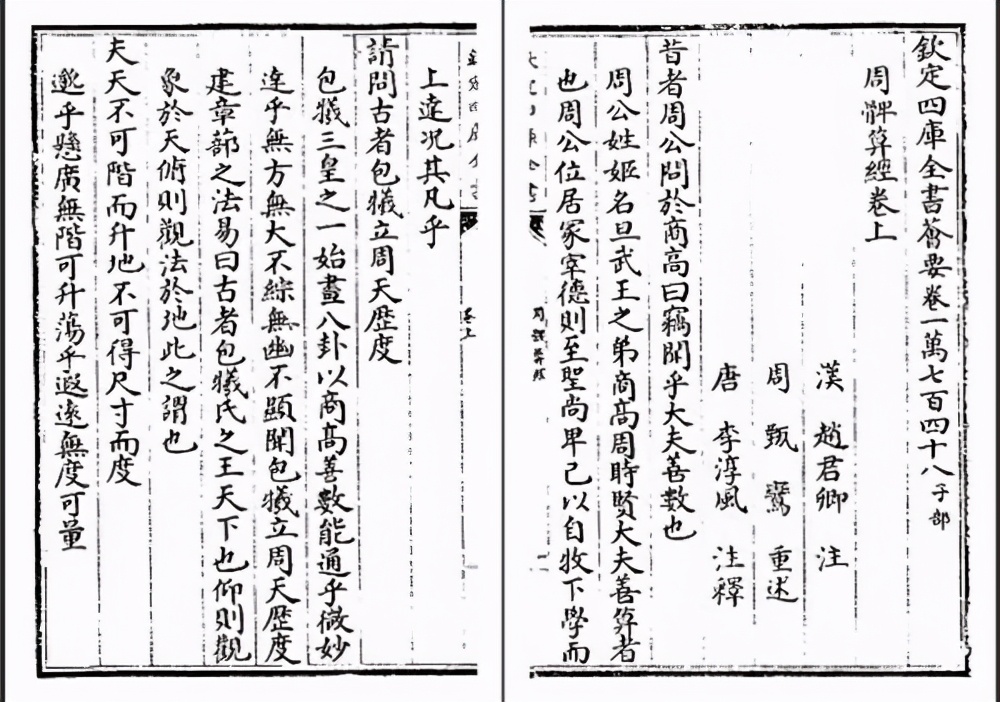 欽定四庫全書薈要卷一萬七百四十八子部
周髀算經卷上
漢 趙君卿 注
周 甄鸞 重述
唐 李淳風 注釋
昔者周公問於商高曰竊聞乎大夫善數也
周公姓姬名旦武王之弟商高周時賢大夫善算者
也周公位居冢宰德則至聖尚卑己以自牧下學而
上逹况其凡乎
請問古者包犧立周天歴度
包犧三皇之一始畫八卦以商髙善數能通乎微妙
逹乎無方無大不綜無幽不顯聞包犧立周天歴度
建章蔀之法易曰古者包犧氏之王天下也仰則觀
象於天俯則觀法於地此之謂也
夫天不可階而升地不可得尺寸而度
邈乎懸廣無階可升蕩乎遐逺無度可量